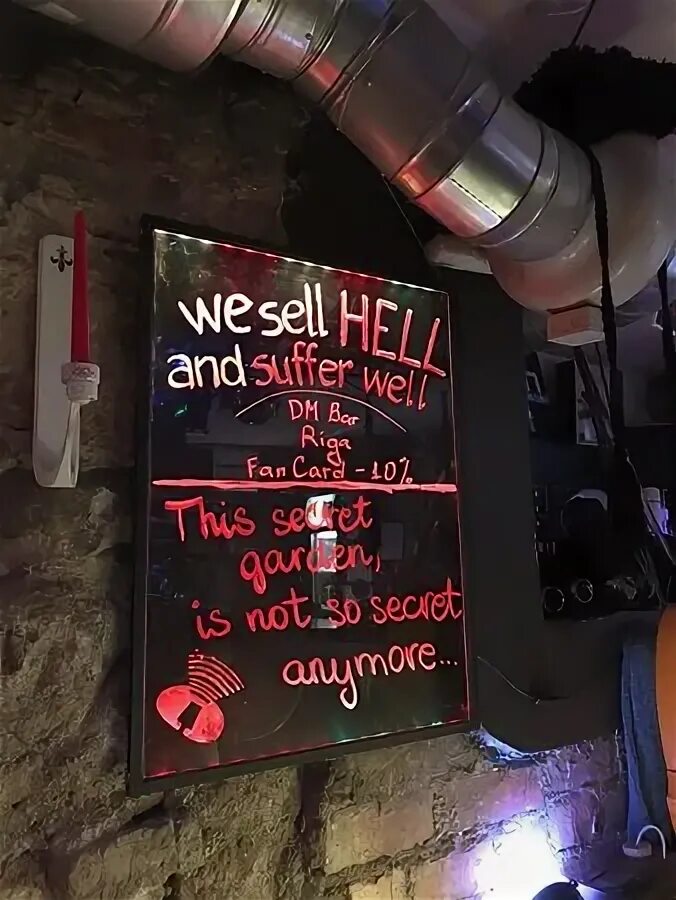 we sell HELL
and suffer well
DM Bar
Riga
Fan Card - 10%
This secret
garden,
is not so secret
anymore...